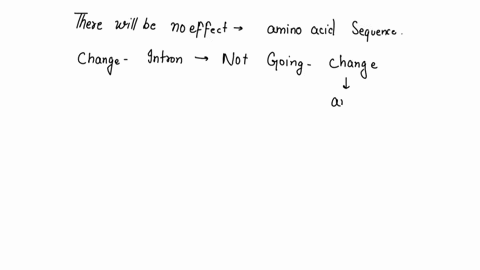 There will be no effect → amino acid Sequence.
Change - Intron → Not Going - change
↓
a